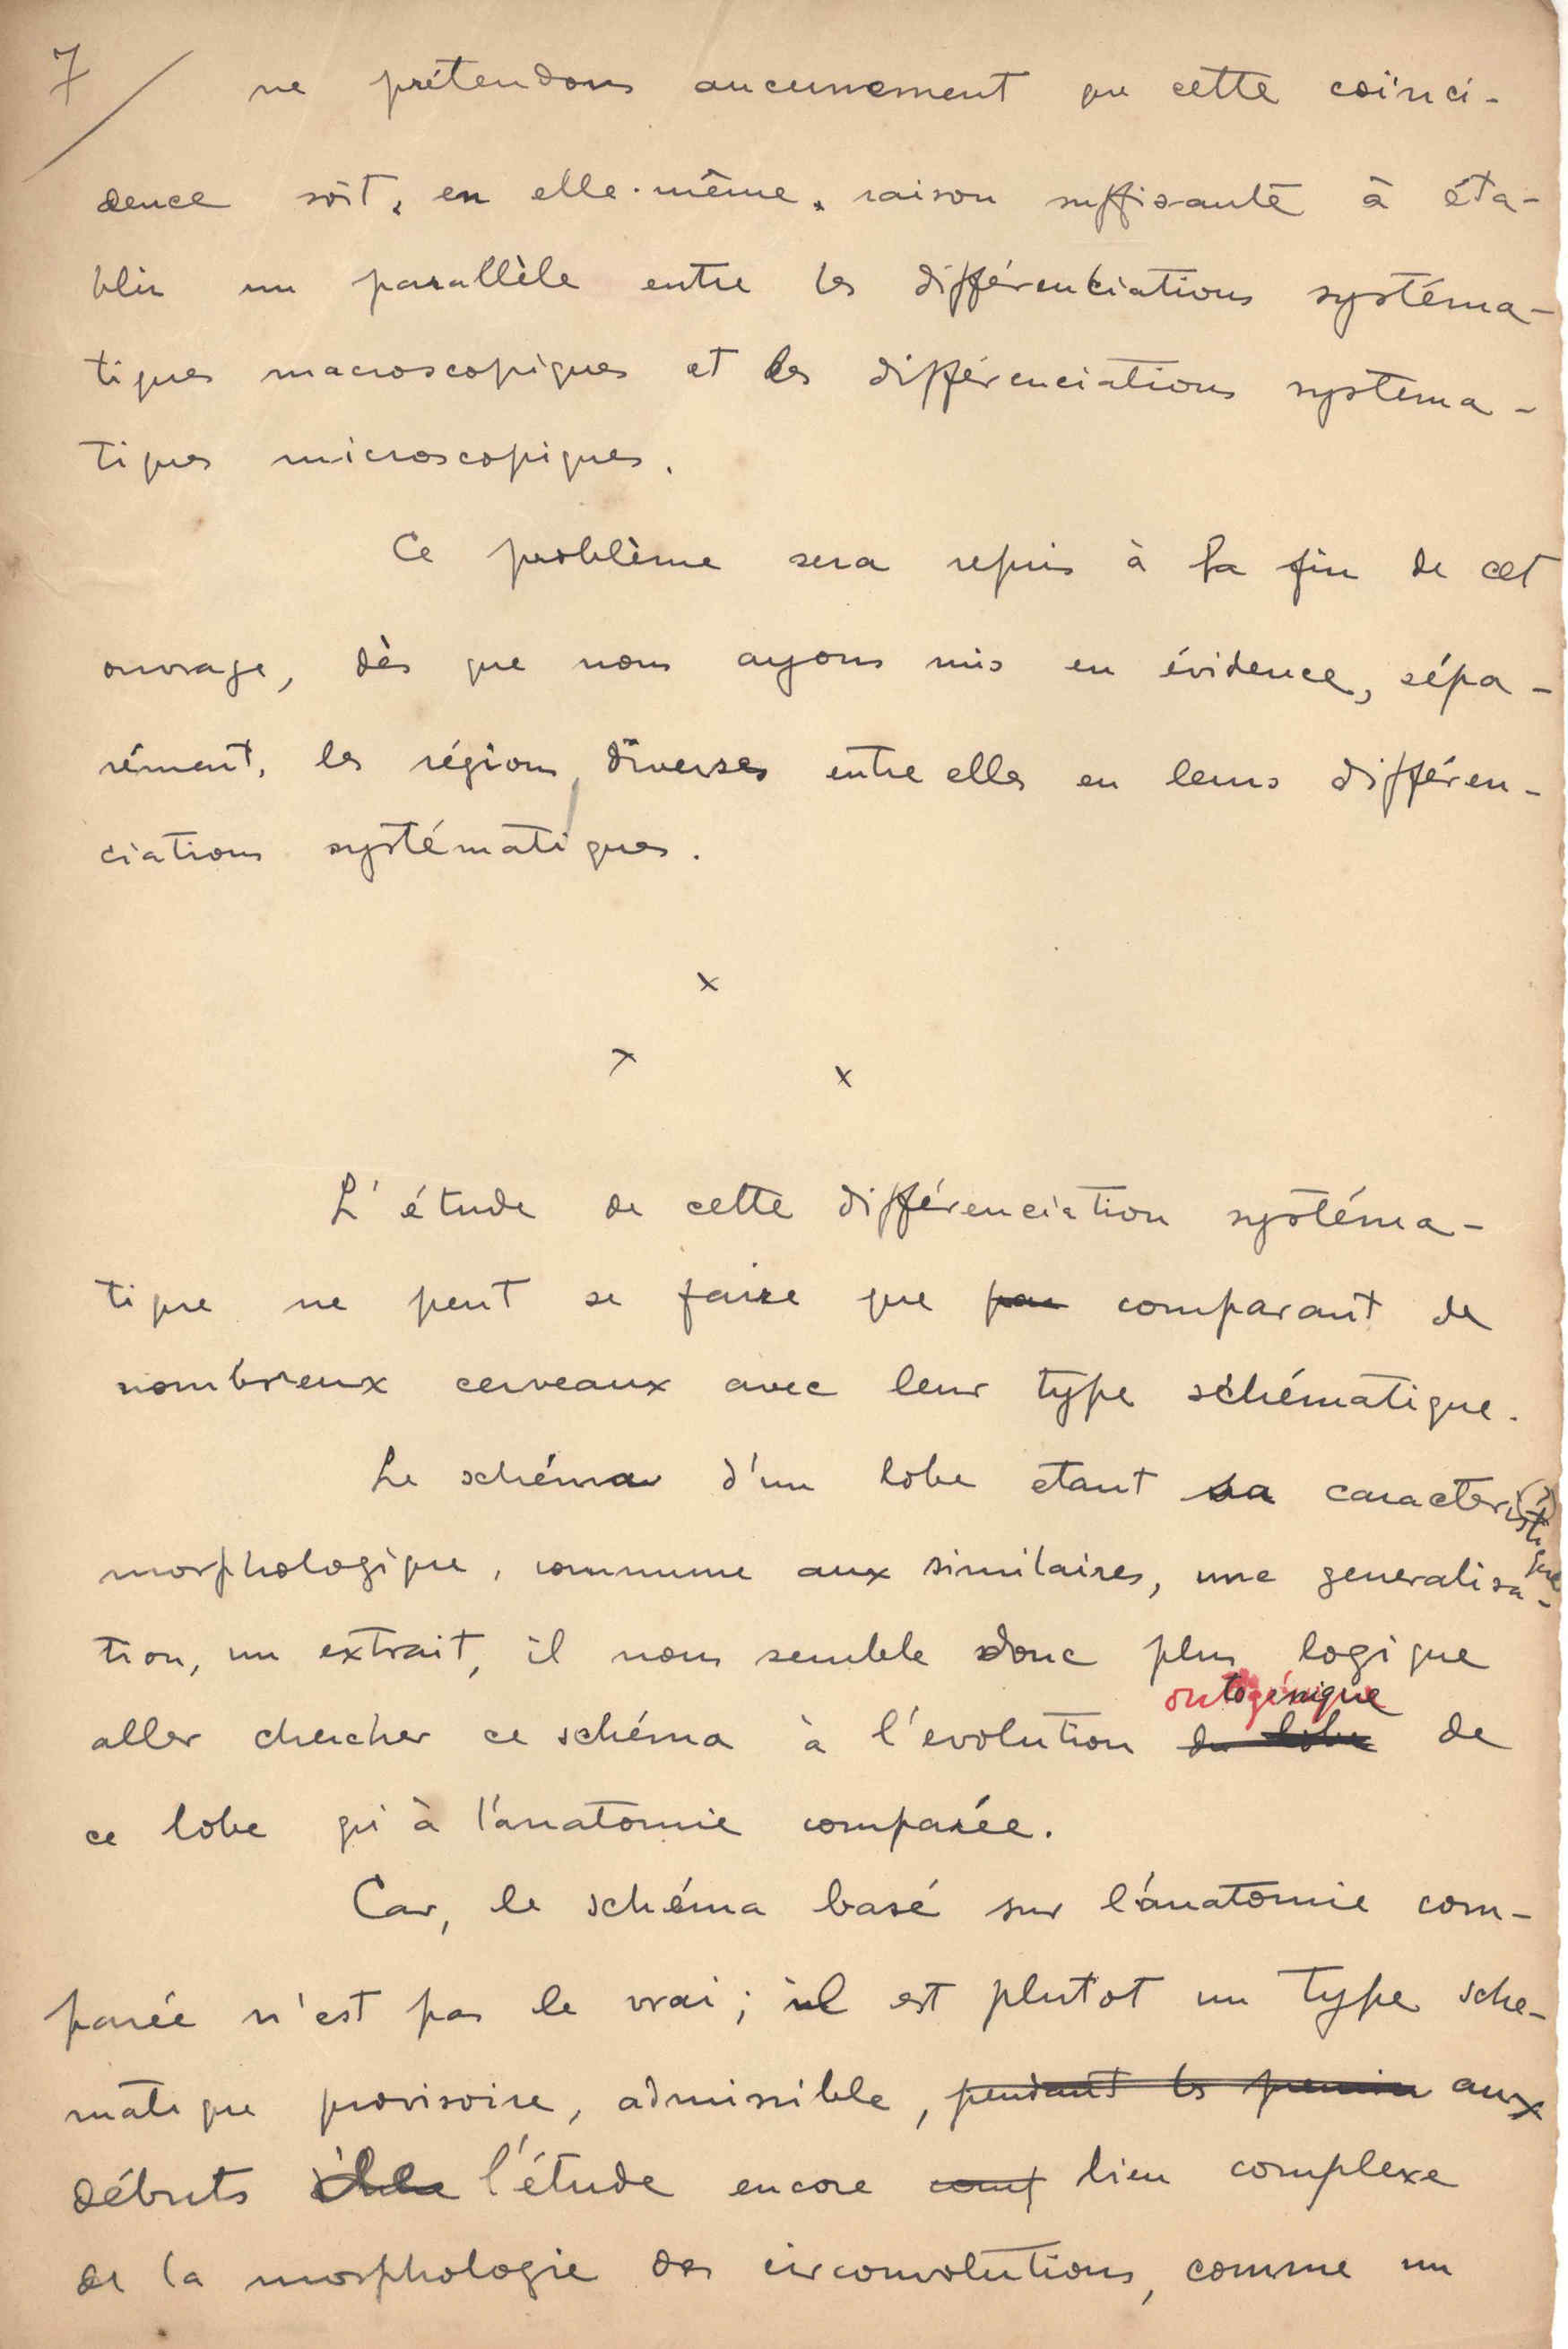 7/ ne prétendons aucunement que cette coïnci-
dence soit, en elle-même, raison suffisante à éta-
blir un parallèle entre les différenciations systéma-
tiques macroscopiques et les différenciations systema-
tiques microscopiques.
Ce problème sera repris à la fin de cet
ouvrage, dès que nous ayons mis en évidence, sépa-
rément, les régions, diverses entre elles en leurs différen-
ciations systématiques.
x
x x
L'étude de cette différenciation systéma-
tique ne peut se faire que par comparant de
nombreux cerveaux avec leur type schématique.
Le schéma d'un lobe etant sa caracteristique (?)
morphologique, commune aux similaires, une generalisa-
tion, un extrait, il nous semble donc plus logique
ontogénique
aller chercher ce schéma à l'evolution du lobe de
ce lobe qu'à l'anatomie comparée.
Car, le schéma basé sur l'anatomie com-
parée n'est pas le vrai; il est plutot un type sche-
matique provisoire, admissible, pendant les premiers aux
débuts l'étude encore bien complexe
de la morphologie des circonvolutions, comme un